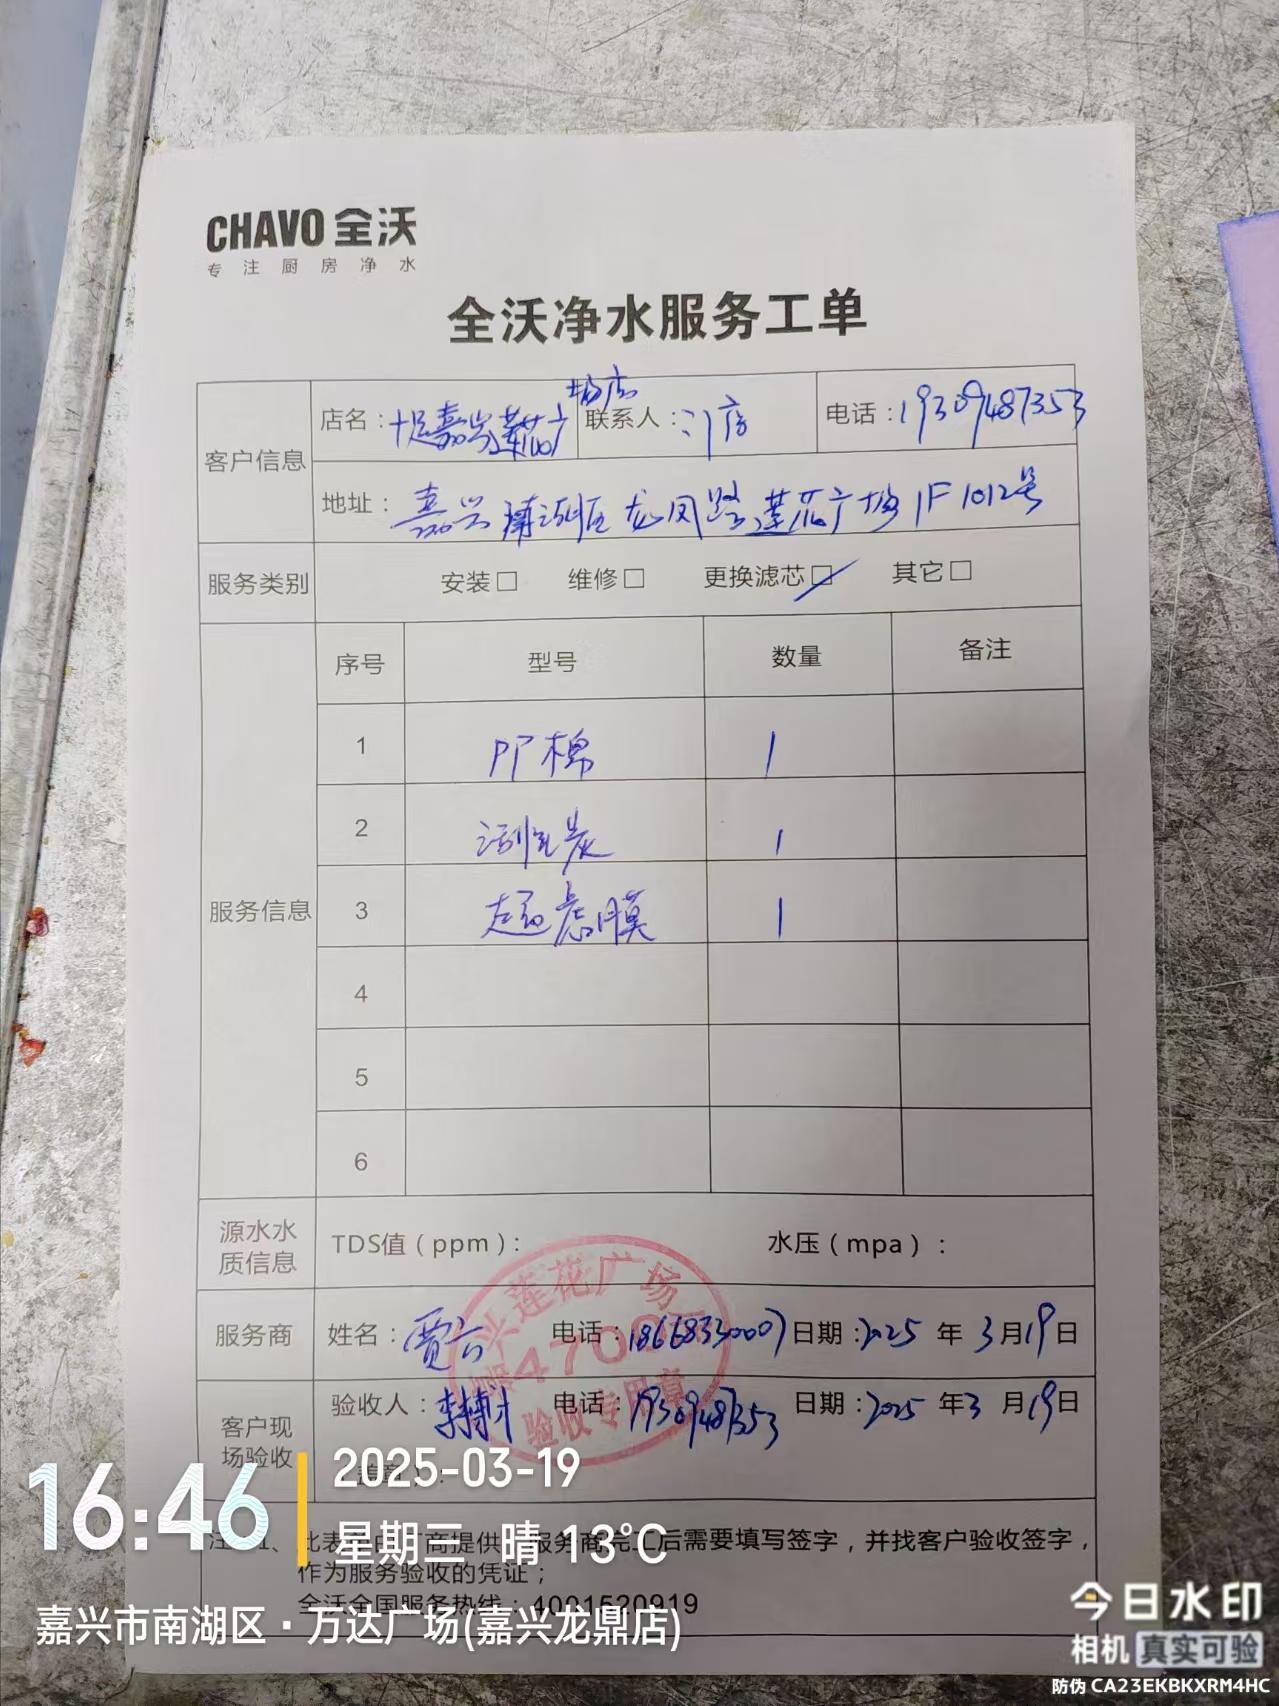 CHAVO 全沃
专注厨房净水
全沃净水服务工单
客户信息
店名：十足嘉兴莲花广场店 联系人：门店 电话：19309487353
地址：嘉兴南湖区龙凤路莲花广场1F1012号
服务类别 安装□ 维修□ 更换滤芯☑ 其它□
服务信息
序号 型号 数量 备注
1 PP棉 1
2 活性炭 1
3 超滤膜 1
4
5
6
源水水质信息 TDS值（ppm）： 水压（mpa）：
兴莲花广场
4700
验收专用章
服务商 姓名：贾 电话：18668330007 日期：2025年3月19日
客户现场验收 验收人：李 电话：19309487353 日期：2025年3月19日
注：1、此表 商提供 服务商完工后需要填写签字，并找客户验收签字，
作为服务验收的凭证；
全沃全国服务热线：4001520919
16:46
2025-03-19
星期三 晴 13℃
嘉兴市南湖区·万达广场(嘉兴龙鼎店)
今日水印
相机 真实可验
防伪 CA23EKBKXRM4HC